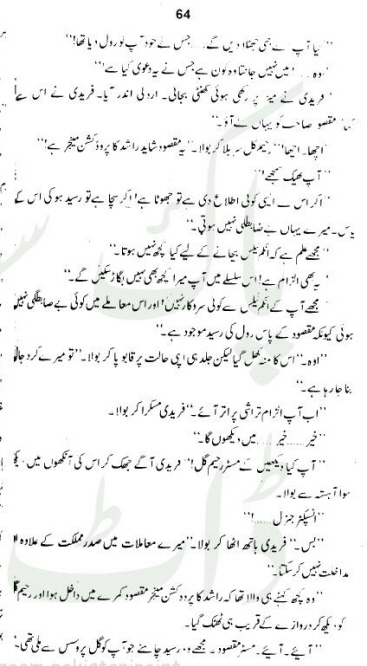 64
"کیا آپ اسے بھی جھٹلا دیں گے..... جس نے خود آپ کو رول دیا تھا!"
"وہ..... میں نہیں جانتا وہ کون ہے جس نے یہ دعویٰ کیا ہے!"
فریدی نے میز پر رکھی ہوئی گھنٹی بجائی۔ اردلی اندر آیا۔ فریدی نے اس سے
مقصود صاحب کو یہاں لے آؤ۔"
اچھا۔ اچھا!" رحیم گل سر ہلا کر بولا۔ "یہ مقصود شاید راشد کا پروڈکشن منیجر ہے!"
"آپ ٹھیک سمجھے!"
"اگر اس نے ایسی کوئی اطلاع دی ہے تو جھوٹا ہے! اگر سچا ہے تو رسید ہو گی اس کے
پاس۔ میرے یہاں بے ضابطگی نہیں ہوتی۔"
"مجھے علم ہے کہ انکم ٹیکس بچانے کے لیے کیا کچھ نہیں ہوتا۔"
"یہ بھی الزام ہے! اس سلسلے میں آپ میرا کچھ بھی نہیں بگاڑ سکیں گے۔"
"مجھے آپ کے انکم ٹیکس سے کوئی سروکار نہیں! اور اس معاملے میں کوئی بے ضابطگی نہیں
ہوئی کیونکہ مقصود کے پاس رول کی رسید موجود ہے۔"
"اوہ۔" اس کا منہ کھل گیا لیکن جلد ہی اپنی حالت پر قابو پا کر بولا۔ "تو میرے گرد جال
بنا جا رہا ہے۔"
"اب آپ الزام تراشی پر اتر آئے۔" فریدی مسکرا کر بولا۔
"خیر..... خیر..... میں دیکھوں گا۔"
"آپ کیا دیکھیں گے مسٹر رحیم گل!" فریدی آگے جھک کر اس کی آنکھوں میں
ہوا آہستہ سے بولا۔
"انسپکٹر جنرل.....!"
"بس۔" فریدی ہاتھ اٹھا کر بولا۔ "میرے معاملات میں صدر مملکت کے علاوہ
مداخلت نہیں کر سکتا۔"
"وہ کچھ کہنے ہی والا تھا کہ راشد کا پروڈکشن منیجر مقصود کمرے میں داخل ہوا اور رحیم
کو دیکھ کر دروازے کے قریب ہی ٹھٹک گیا۔
"آیئے۔ آیئے۔ مسٹر مقصود۔ مجھے وہ رسید چاہئے جو آپ کو گل پروسس سے ملی تھی۔"